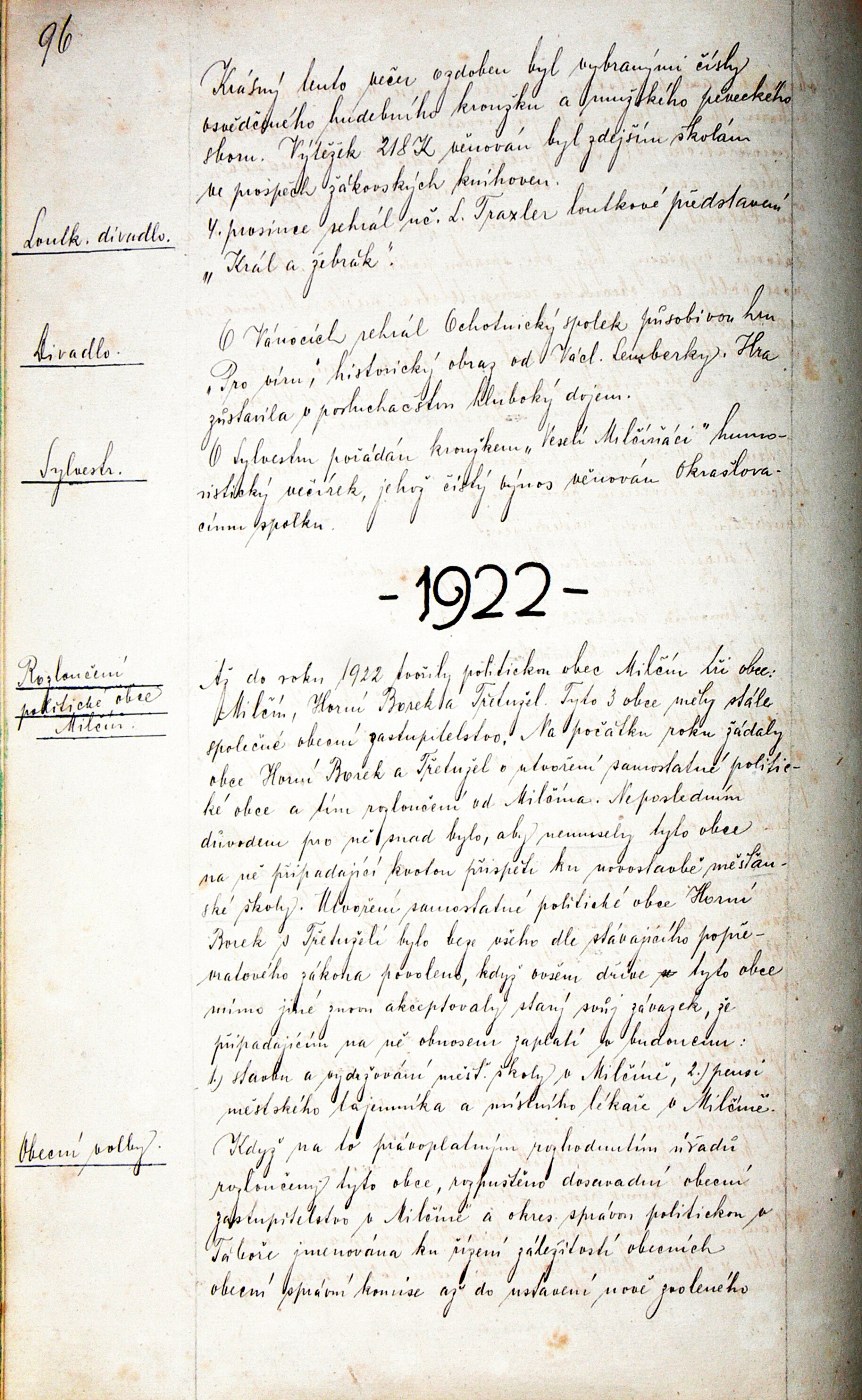 96
Krásný tento večer ozdoben byl vybranými čísly
osvědčeného hudebního kroužku a mužského pěveckého
sboru. Výtěžek 218 K věnován byl zdejším školám
ve prospěch žákovských knihoven.
Loutk. divadlo.
4. prosince sehrál uč. L. Traxler loutkové představení
„Král a žebrák“.
Divadlo.
O Vánocích sehrál Ochotnický spolek působivou hru
„Pro víru“, historický obraz od Václ. Lemberky. Hra
zůstavila v posluchačstvu hluboký dojem.
Sylvestr.
O Sylvestru pořádán kroužkem „Veselí Milčíňáci“ humo-
ristický večírek, jehož čistý výnos věnován Okrašlova-
címu spolku.
-1922-
Rozloučení
politické obce
Milčín.
Až do roku 1922 tvořily politickou obec Milčín tři obce:
Milčín, Horní Borek a Třetužel. Tyto 3 obce měly stále
společné obecní zastupitelstvo. Na počátku roku žádaly
obce Horní Borek a Třetužel o utvoření samostatné politic-
ké obce a tím rozloučení od Milčína. Neposledním
důvodem pro ně snad bylo, aby nemusely tyto obce
na ně připadající kvotou přispěti ku novostavbě měšťan-
ské školy. Utvoření samostatné politické obce Horní
Borek s Třetuželí bylo beze všeho dle stávajícího popře-
vratového zákona povoleno, když ovšem dříve tyto obce
mimo jiné znovu akceptovaly starý svůj závazek, že
připadajícím na ně obnosem zaplatí v budoucnu:
1.) stavbu a vydržování měšť. školy v Milčíně, 2.) pensi
městského tajemníka a místního lékaře v Milčíně.
Obecní volby.
Když na to právoplatným rozhodnutím úřadů
rozloučeny tyto obce, rozpuštěno dosavadní obecní
zastupitelstvo v Milčíně a okres. správou politickou v
Táboře jmenována ku řízení záležitostí obecních
obecní správní komise až do ustavení nově zvoleného